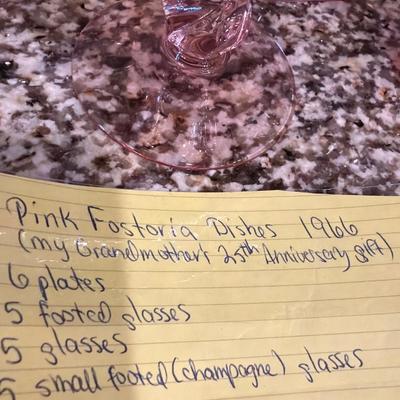 Pink Fostoria Dishes 1966
(my Grandmother's 25th Anniversary gift)
6 plates
5 footed glasses
5 glasses
5 small footed (champagne) glasses